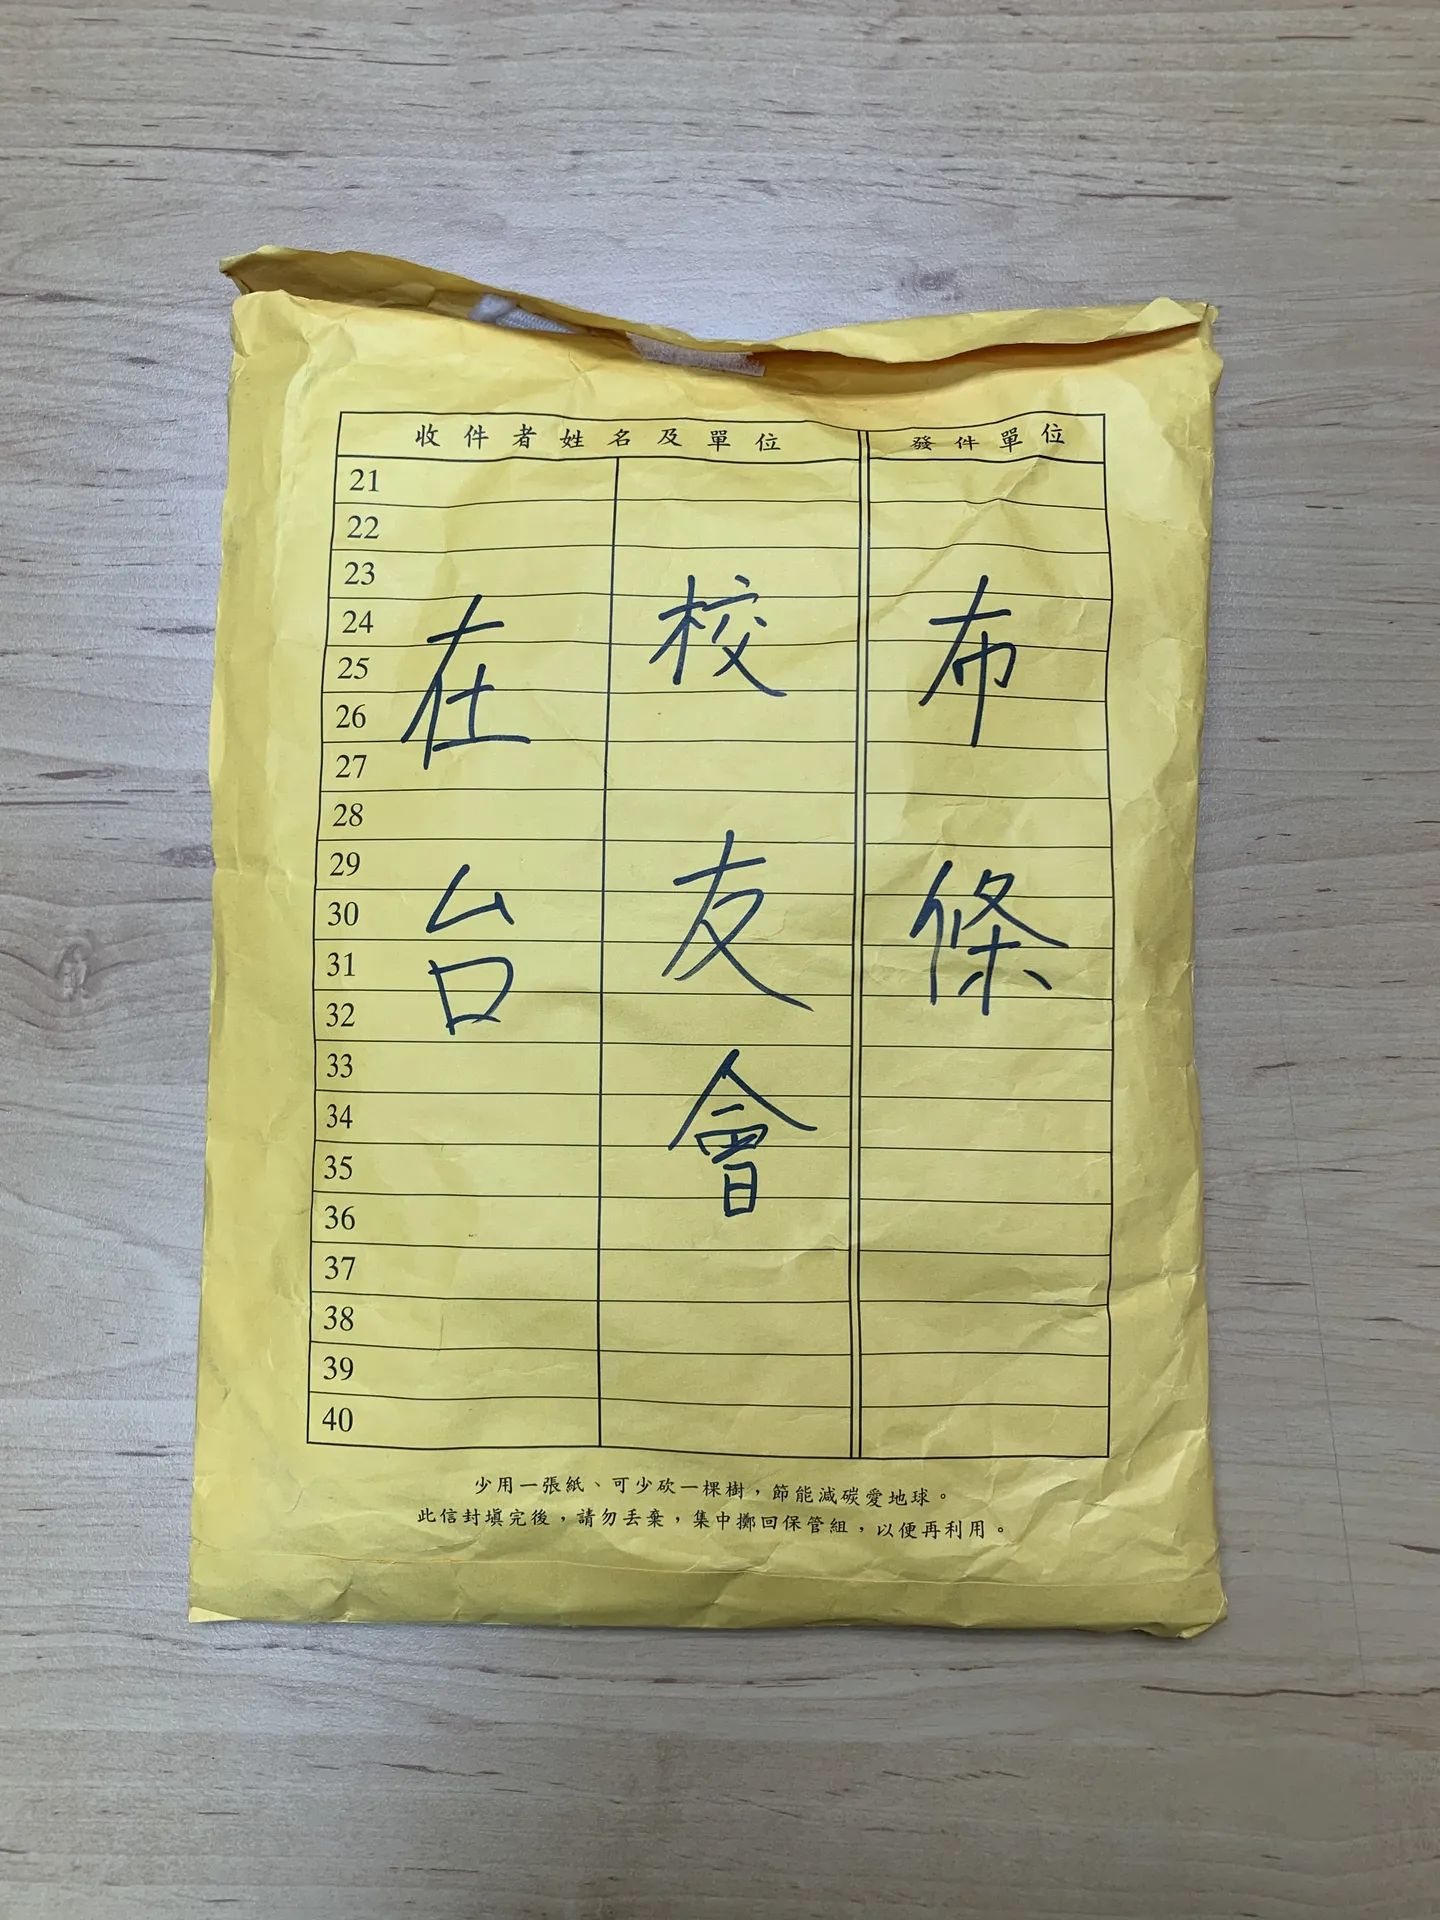 收件者姓名及單位 發件單位
21
22
23
24
25
26
27
28
29
30
31
32
33
34
35
36
37
38
39
40
在台
校友會
布條
少用一張紙、可少砍一棵樹，節能減碳愛地球。
此信封填完後，請勿丟棄，集中擲回保管組，以便再利用。